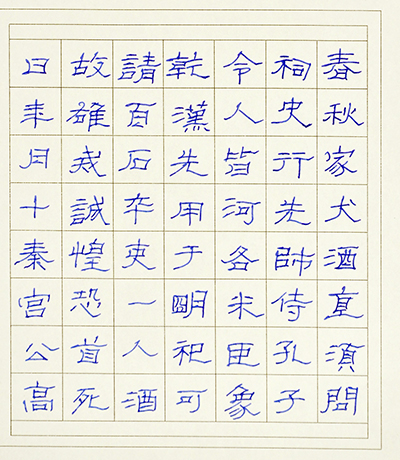 春秋家犬酒直須問
祠史行先師侍孔子
令人皆河各米象
乾漢先用于明祀可
請百石卒吏一人酒
故雄戒誠惶恐首死
日年月十秦宮公高